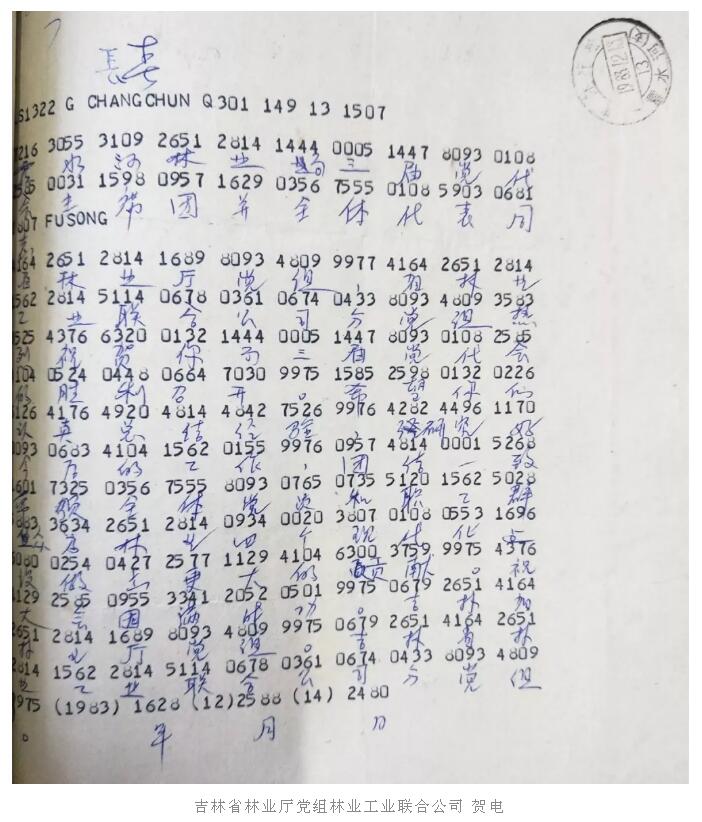 長春
S1322 G CHANGCHUN Q301 149 13 1507
3055 3109 2651 2814 1444 0005 1447 8093 0108
水河林业局三届党代
0031 1598 0957 1629 0356 7555 0108 5903 0681
主席团并全体代表同
FUSONG
2651 2814 1689 8093 4809 9977 4164 2651 2814
林业厅党组,省林业
2814 5114 0678 0361 0674 0433 8093 4809 3583
工业联合公司分党组热
4376 6320 0132 1444 0005 1447 8093 0108 2585
烈祝贺你局三届党代会
0524 0448 0664 7030 9975 1585 2598 0132 0226
的胜利召开。希望你们
4176 4920 4814 4842 7526 9976 4282 4496 1170
认真总结经验,研究好
0683 4104 1562 0155 9976 0957 4814 0001 5268
今后的工作,团结一致
7325 0356 7555 8093 0765 0735 5120 1562 5028
带领全体党员和职工群
3634 2651 2814 0934 0020 3807 0108 0553 1696
为林业四个现代化建
0254 0427 2577 1129 4104 6300 3759 9975 4376
设做出更大的贡献。祝
2585 0955 3341 2052 0501 9975 0679 2651 4164
大会圆满成功。吉林省
2651 2814 1689 8093 4809 9975 0679 2651 4164 2651
林业厅党组。吉林省林
2814 1562 2814 5114 0678 0361 0674 0433 8093 4809
业工业联合公司分党组
9975 (1983) 1628 (12)2588 (14) 2480
。 年 月 日
吉林省林业厅党组林业工业联合公司 贺电